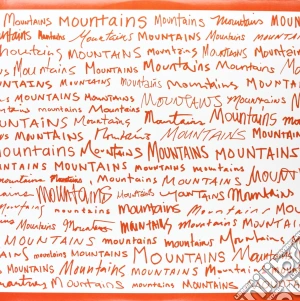 Mountains Mountains Mountains Mountains MOUNTAINS
Mountains Mountains MOUNTAINS Mountains MOUNTAINS
Mountains MOUNTAINS Mountains Mountains MOUNTAINS
Mountains MOUNTAINS Mountains MOUNTAINS
MOUNTAINS Mountains mountains Mountains
MOUNTAINS MOUNTAINS MOUNTAINS MOUNTAINS
mountains mountains MOUNTAINS Mountains MOUNTAINS
MOUNTAINS Mountains MOUNTAINS
Mountains MOUNTAINS MOUNTAINS MOUNTAINS
MOUNTAINS MOUNTAINS MOUNTAINS MOUNTAINS
Mountains MOUNTAINS MOUNTAINS
mountains MOUNTAINS Mountains
Mountains mountains Mountains Mountains
Mountains Mountains MOUNTAINS mountains
MOUNTAINS mountains mountains Mountains
mountains MOUNTAINS MOUNTAINS
MOUNTAINS Mountains MOUNTAINS Mountains
Mountains MOUNTAINS Mountains MOUNTAINS